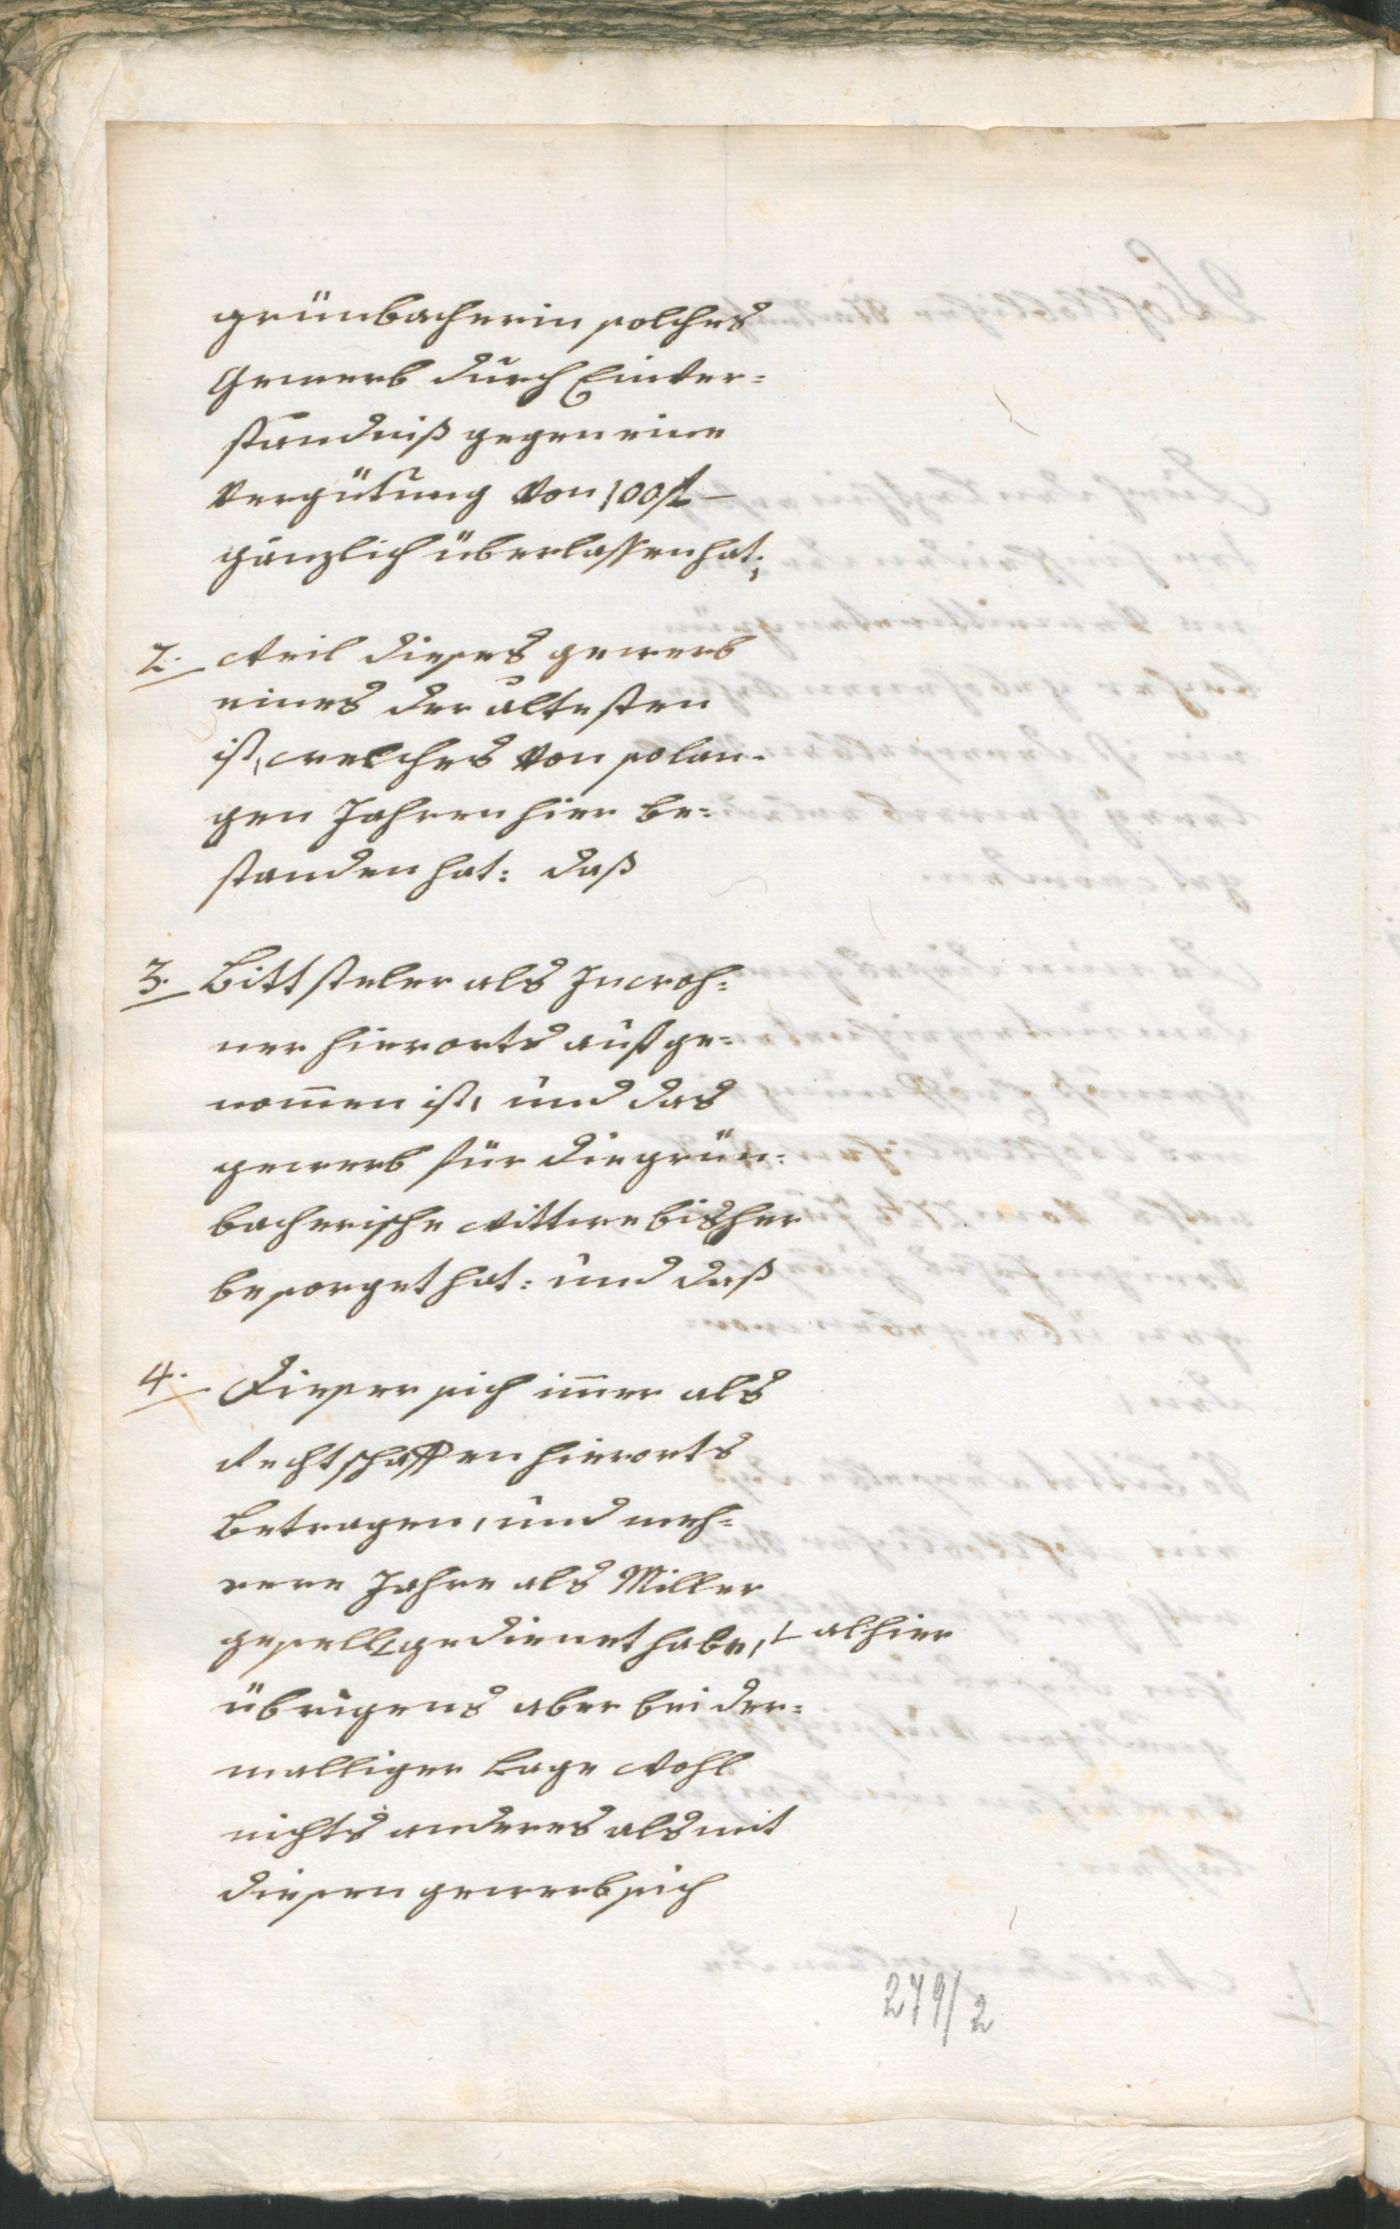 grünbacherin solches
Gewerb durch Einver=
ständniß gegen eine
Vergütung von 100 fl –
gänzlich überlassen hat;
2. Weil dieses gewerb
eines der ältesten
ist, welches von so lan=
gen Jahren hier be=
standen hat: daß
3. Bittsteler als Inwoh=
ner hierorts aufge=
nom̄en ist, und das
gewerb für die grün=
bacherische Wittwe bisher
besorget hat: und daß
4. Dieser sich im̄er als
Rechtschaffen hierorts
Betragen, und meh=
rere Jahre als Miller
gesell gedienet habe, alhier
übrigens aber bei der=
malliger Lage Wohl
nichts anderes als mit
diesen gewerb sich
279/2